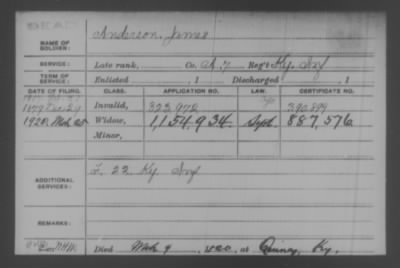 Anderson James
NAME OF SOLDIER:
SERVICE: Late rank, Co. A. 7 Reg't Ky. Inf
TERM OF SERVICE: Enlisted , 1 Discharged , 1
DATE OF FILING. CLASS. APPLICATION NO. LAW. CERTIFICATE NO.
Invalid, 323,972
1920. Mch 25 Widow, 1,154,934. Sept. 887,576
Minor,
ADDITIONAL SERVICES: F. 22 Ky Inf
REMARKS:
Died Mch 9, 1920, at Quincy, Ky.